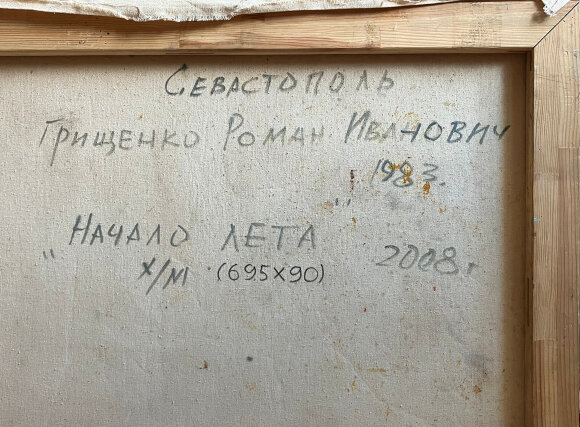 Севастополь
Грищенко Роман Иванович
1983.
"Начало лета
2008г
х/м (695х90)